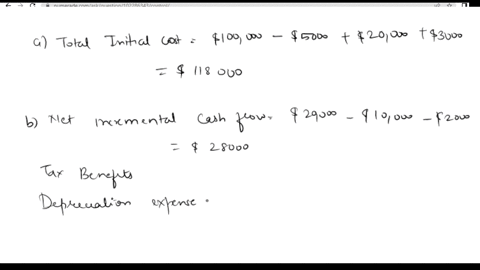 a) Total Initial cost = $100,000 - $5000 + $20,000 + $3000
= $ 118 000
b) Net incremental cash flow = $ 29000 - $10,000 - $2000
= $ 28000
Tax Benefits
Depreciation expense =